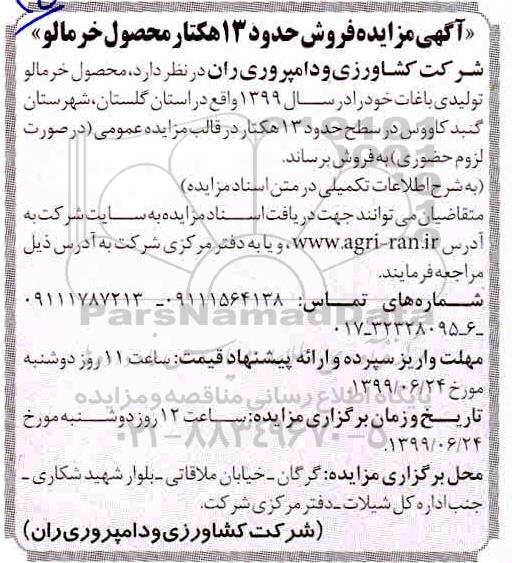 «آگهی مزایده فروش حدود ۱۳ هکتار محصول خرمالو»
شرکت کشاورزی و دامپروری ران در نظر دارد، محصول خرمالو
تولیدی باغات خود را در سال ۱۳۹۹ واقع در استان گلستان، شهرستان
گنبد کاووس در سطح حدود ۱۳ هکتار در قالب مزایده عمومی (در صورت
لزوم حضوری) به فروش برساند.
(به شرح اطلاعات تکمیلی در متن اسناد مزایده)
متقاضیان می توانند جهت دریافت اسناد مزایده به سایت شرکت به
آدرس www.agri-ran.ir، و یا به دفتر مرکزی شرکت به آدرس ذیل
مراجعه فرمایند.
شماره‌های تماس: ۰۹۱۱۱۵۶۴۱۳۸ـ ۰۹۱۱۱۷۸۷۲۱۳
ـ۶ـ۰۱۷-۳۲۳۲۸۰۹۵
مهلت واریز سپرده و ارائه پیشنهاد قیمت: ساعت ۱۱ روز دوشنبه
مورخ ۱۳۹۹/۰۶/۲۴.
تاریخ و زمان برگزاری مزایده: ساعت ۱۲ روز دوشنبه مورخ
۱۳۹۹/۰۶/۲۴.
محل برگزاری مزایده: گرگان ـ خیابان ملاقاتی ـ بلوار شهید شکاری ـ
جنب اداره کل شیلات ـ دفتر مرکزی شرکت.
(شرکت کشاورزی و دامپروری ران)
ParsNamadData
پایگاه اطلاع رسانی مناقصه و مزایده
۰۲۱-۸۸۳۴۹۶۷۰-۵